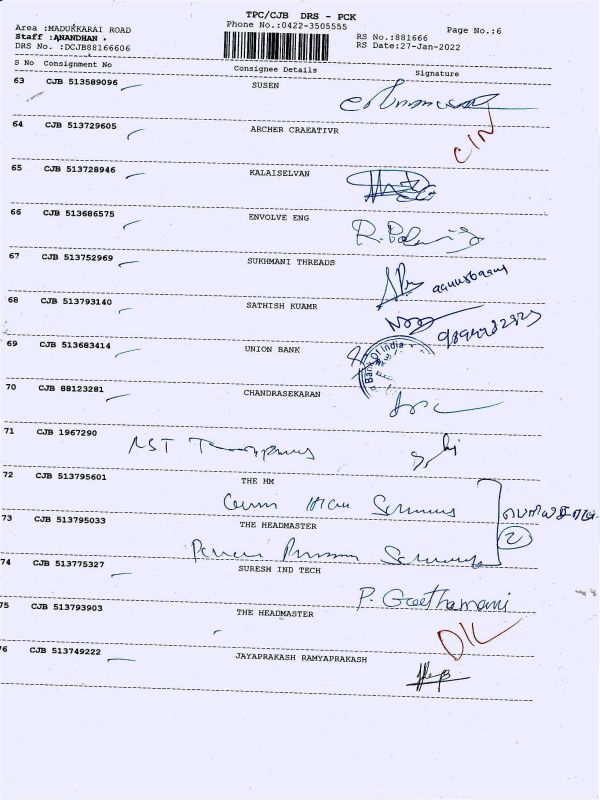 TPC/CJB DRS - PCK
Area :MADUKKARAI ROAD
Phone No.:0422-3505555
Page No.:6
Staff :ANANDHAN .
RS No.:881666
DRS No. :DCJB88166606
RS Date:27-Jan-2022
S No Consignment No Consignee Details Signature
63 CJB 513589096 SUSEN
64 CJB 513729605 ARCHER CRAEATIVR
C/N
65 CJB 513728946 KALAISELVAN
66 CJB 513686575 ENVOLVE ENG
67 CJB 513752969 SUKHMANI THREADS
68 CJB 513793140 SATHISH KUAMR
69 CJB 513683414 UNION BANK
Bank Of India
70 CJB 88123281 CHANDRASEKARAN
71 CJB 1967290
72 CJB 513795601 THE HM
73 CJB 513795033 THE HEADMASTER
2
74 CJB 513775327 SURESH IND TECH
P. Geethamani
75 CJB 513793903 THE HEADMASTER
D/L
76 CJB 513749222 JAYAPRAKASH RAMYAPRAKASH